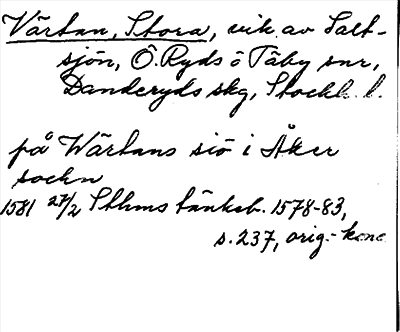 Värtan, Stora, vik av Salt-
sjön, Ö. Ryds o Täby snr,
Danderyds skg, Stockh. l.
på Wärtans siö i Åker
sockn
1581 27/2 Sthms tänkeb. 1578-83,
s. 237, orig.-konc